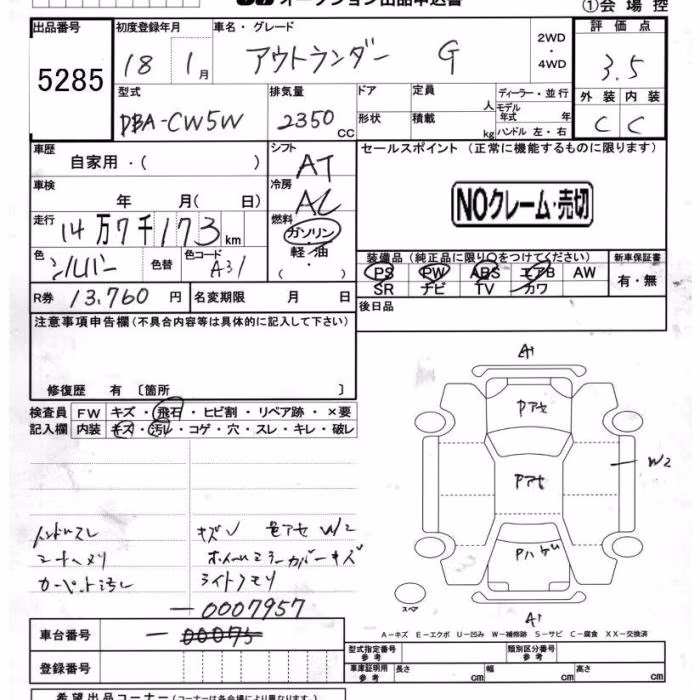 オークション出品申込書
①会場控
出品番号
5285
初度登録年月
18 1月
車名・グレード
アウトランダー G
2WD
・
4WD
評価点
3.5
型式
DBA-CW5W
排気量
2350 CC
ドア
定員
人
形状
積載
kg
ディーラー・並行
モデル年式 年
ハンドル 左・右
外装
内装
C
C
車歴
自家用・( )
シフト
AT
セールスポイント (正常に機能するものに限ります)
NOクレーム・売切
車検
年 月( 日)
冷房
AC
走行
14万7千173km
燃料
ガソリン
軽・油
・( )
色
シルバー
色替
色コード
A31
装備品(純正品に限り○をつけてください)
PS PW ABS エアB AW
SR ナビ TV カワ
新車保証書
有・無
R券
13,760 円
名変期限 月 日
後日品
注意事項申告欄(不具合内容等は具体的に記入して下さい)
修復歴 有 〔箇所 〕
検査員
記入欄
FW キズ・飛石・ヒビ割・リペア跡・×要
内装 キズ・汚レ・コゲ・穴・スレ・キレ・破レ
A1
Pアセ
Pアセ
W2
Pハゲ
A1
スペア
ハンドルスレ
シートヘタリ
カーペット汚し
キズ 色アセ W2
ホイールミラーカバーキズ
ライトクモリ
A-キズ E-エクボ U-凹み W-補修跡 S-サビ C-腐食 XX-交換済
車台番号
-0007957
-00075
登録番号
型式指定番号
参考
類別区分番号
参考
車庫証明用
参考
長さ cm
幅 cm
高さ cm
希望出品コーナー(コーナーは各会場により異なります)